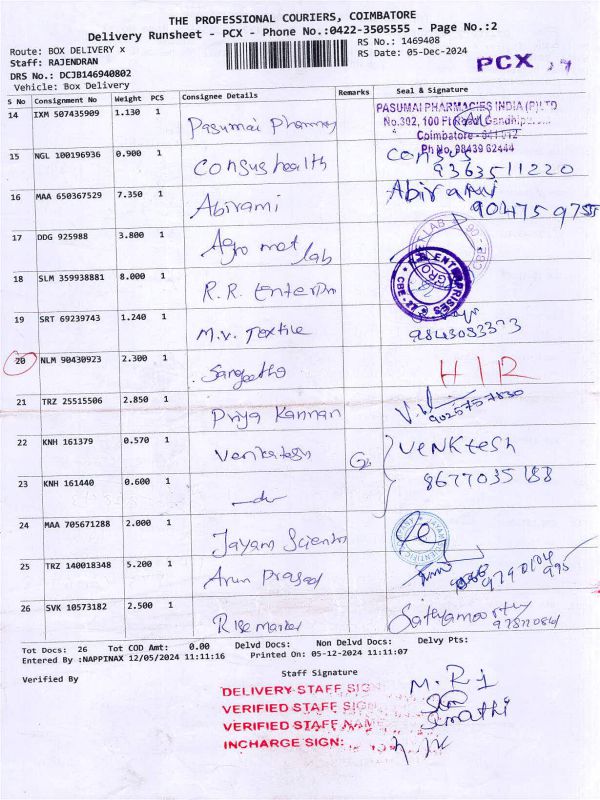 THE PROFESSIONAL COURIERS, COIMBATORE
Delivery Runsheet - PCX - Phone No.:0422-3505555 - Page No.:2
Route: BOX DELIVERY x
RS No.: 1469408
Staff: RAJENDRAN
RS Date: 05-Dec-2024
PCX
DRS No.: DCJB146940802
Vehicle: Box Delivery
S No Consignment No Weight PCS Consignee Details Remarks Seal & Signature
14 IXM 507435909 1.130 1 Pasumai Pharmacy
PASUMAI PHARMACIES INDIA (P) LTD
No.302, 100 Ft Road, Gandhipuram
Coimbatore - 641 012
Ph No. 98439 62444
15 NGL 100196936 0.900 1 Consushealth Consus
9363511220
16 MAA 650367529 7.350 1 Abirami Abirami
17 DDG 925988 3.800 1 Agro mat lab
18 SLM 359938881 8.000 1 R.R. Enterpri
R.R. ENTERPRISES
CBE-12
19 SRT 69239743 1.240 1 M.V. Textile
20 NLM 90430923 2.300 1 Sangeetha H/R
21 TRZ 25515506 2.850 1 Priya Kannan
9025757830
22 KNH 161379 0.570 1 Venkatesh VENKtesh
8677035188
23 KNH 161440 0.600 1 do
24 MAA 705671288 2.000 1 Jayam Scienti
25 TRZ 140018348 5.200 1 Arun Prasad
26 SVK 10573182 2.500 1 Rise market Sathyamoorthy
Tot Docs: 26 Tot COD Amt: 0.00 Delvd Docs: Non Delvd Docs: Delvy Pts:
Entered By :NAPPINAX 12/05/2024 11:11:16 Printed On: 05-12-2024 11:11:07
Verified By Staff Signature
DELIVERY STAFF SIGN
VERIFIED STAFF SIGN
VERIFIED STAFF NAME
INCHARGE SIGN: